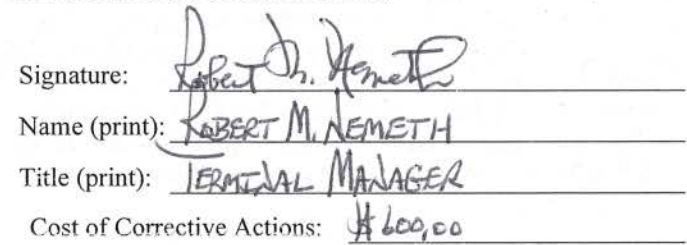 Signature: Robert M. Nemeth
Name (print): ROBERT M. NEMETH
Title (print): TERMINAL MANAGER
Cost of Corrective Actions: $600.00